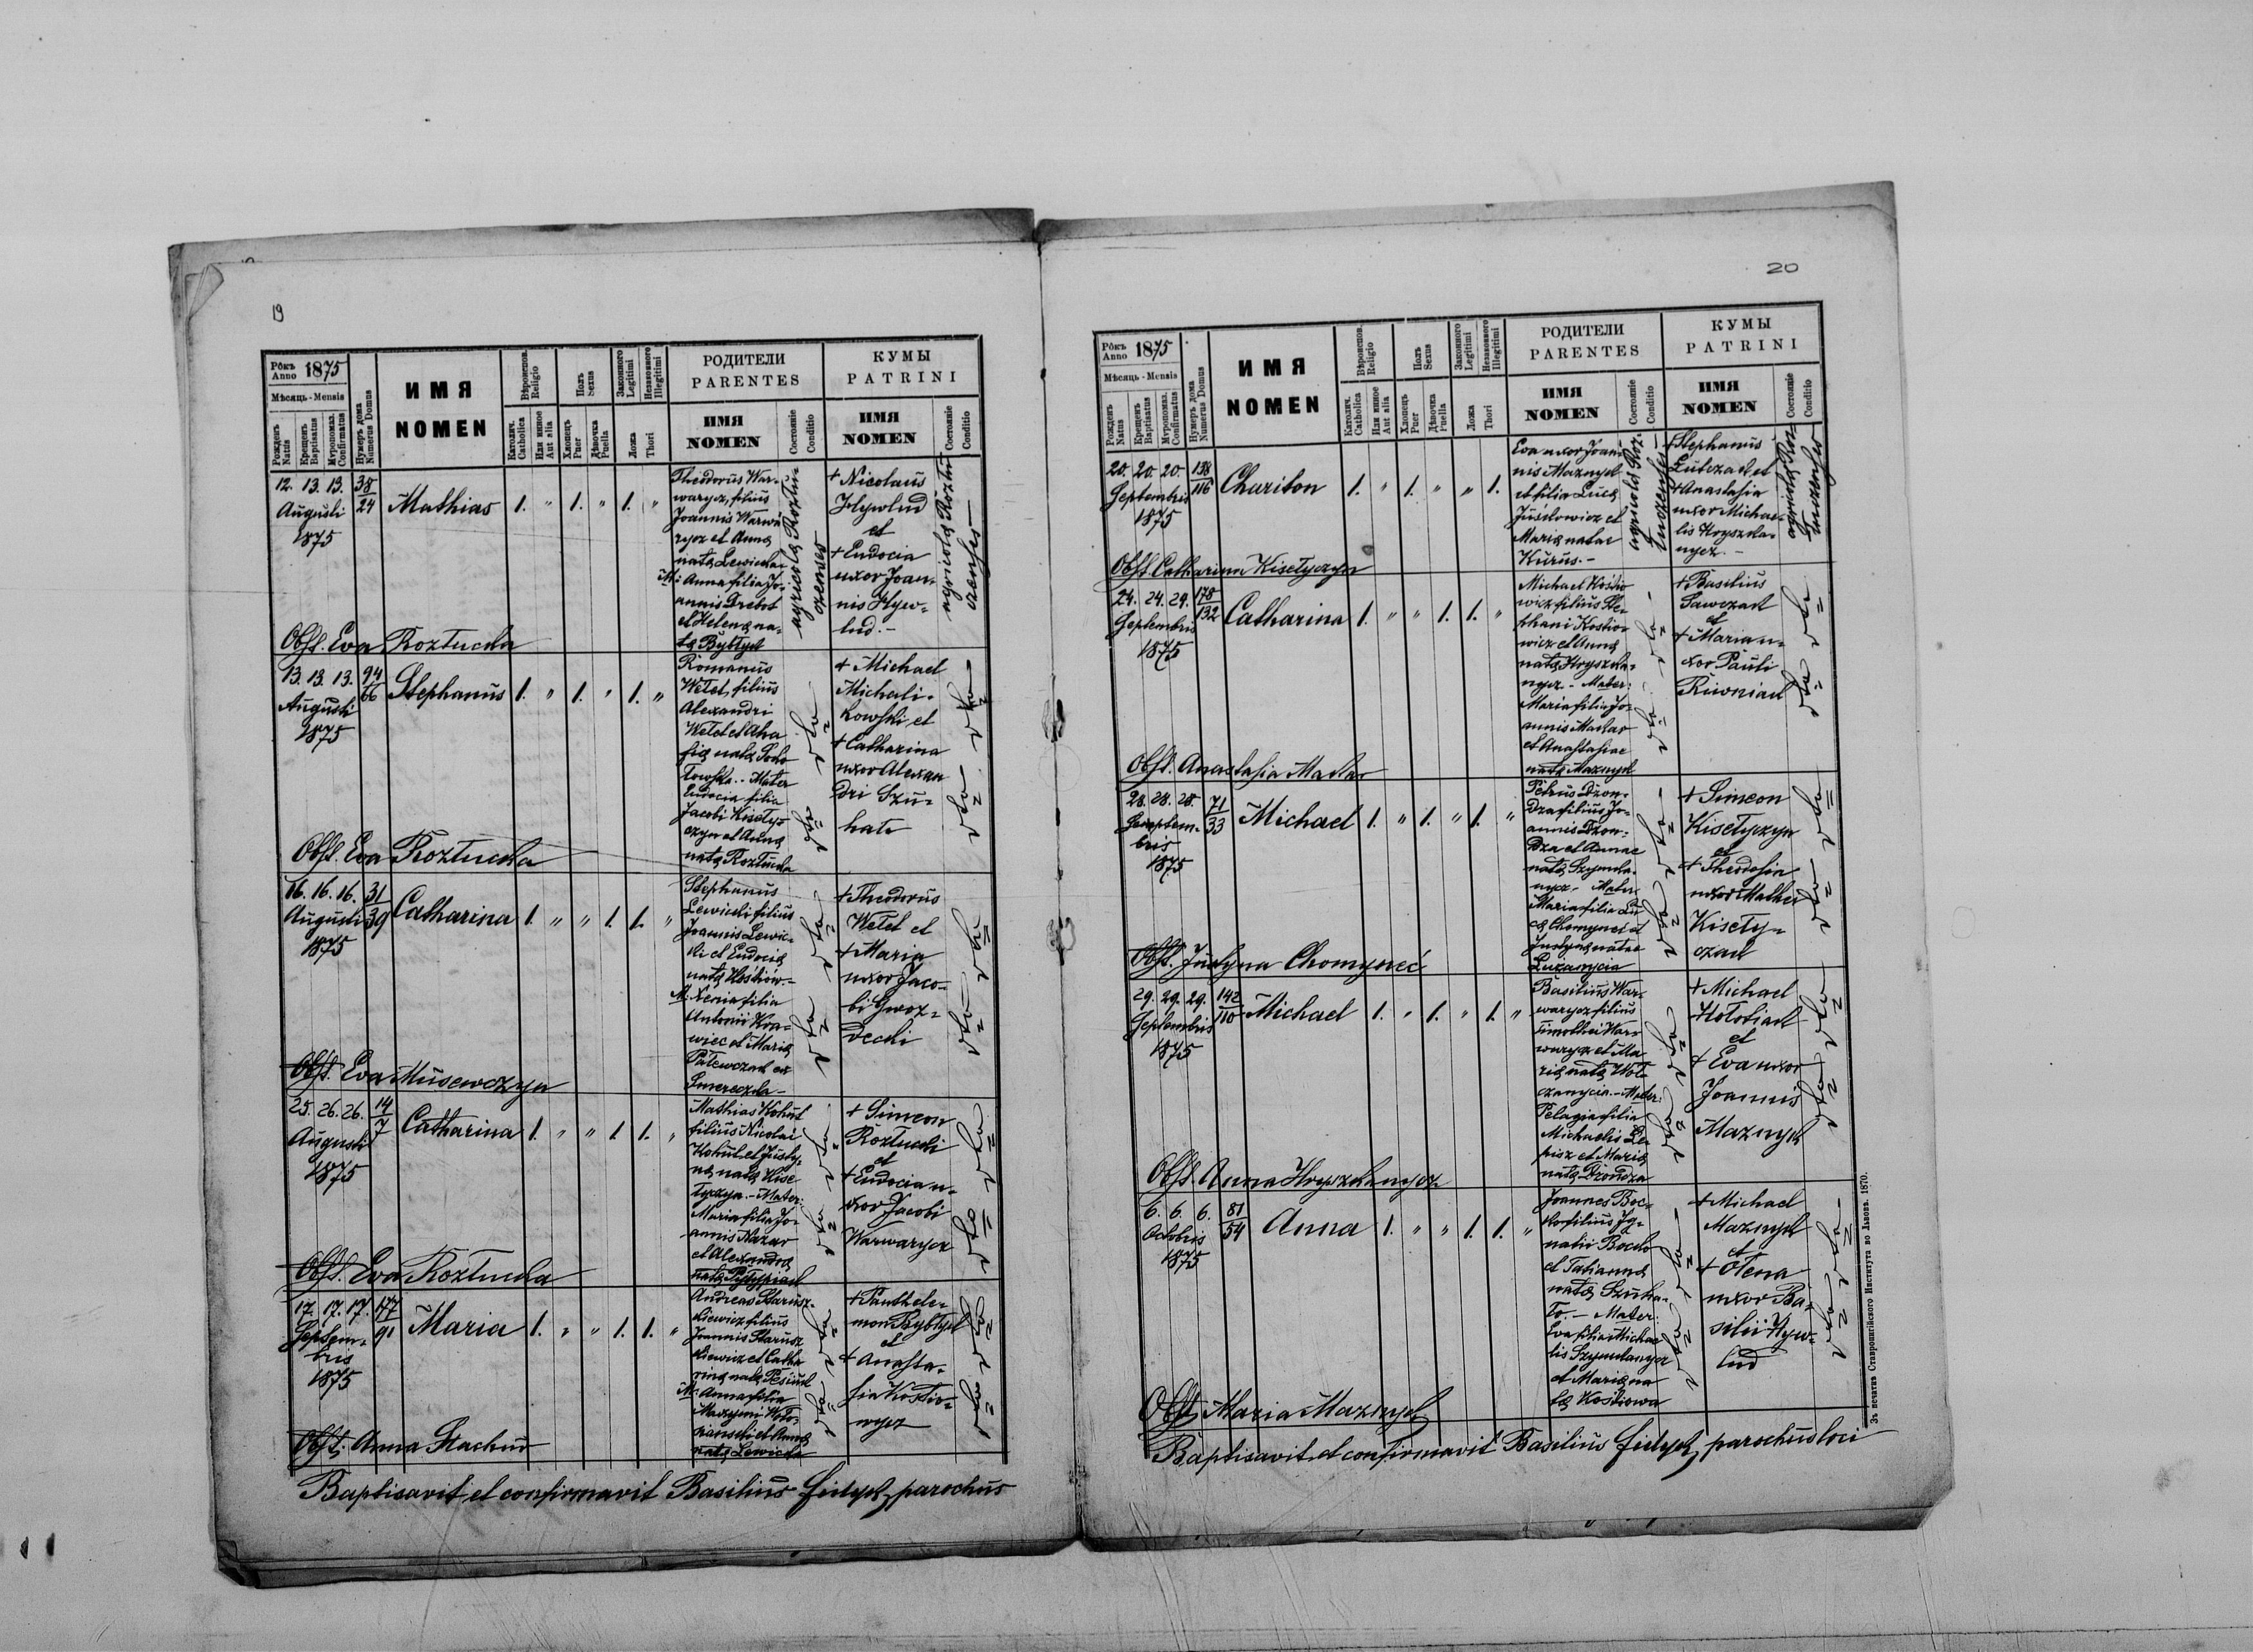 19
Рôкъ Anno 1875
Мѣсяць - Mensis
Рожденъ Natus
Крещенъ Baptisatus
Муропомаз. Confirmatus
Нумеръ дома Numerus Domus
ИМЯ
NOMEN
Вѣроиспов. Religio
Католич. Catholica
Или инное Aut alia
Полъ Sexus
Хлопець Puer
Дѣвочка Puella
Законного Legitimi
Незаконного Illegitimi
Ложа Thori
РОДИТЕЛИ
PARENTES
ИМЯ
NOMEN
Состояніе Conditio
КУМЫ
PATRINI
ИМЯ
NOMEN
Состояніе Conditio
12. 13. 13. 38/24
Augusti
1875
Mathias 1. " 1. " 1. "
Theodorus War-
warycz, filius
Joannis Warwa
rycz et Annæ
natæ Lewicka
M: Anna filia Jo-
annis Drebot
et Helenæ na-
tæ Bybtyk
agricolæ Roztu-
czenses
+ Nicolaus
Hywlud
et
+ Eudocia
uxor Joan-
nis Hyw-
lud. -
agricolæ Roztu
czenses -
Obst. Eva Roztucka
13. 13. 13. 94/66
Augusti
1875
Stephanus 1. " 1. " 1. "
Romanus
Wetet, filius
Alexandri
Wetet et Aha
fiæ natæ Soko
towska. - Mater
Eudocia filia
Jacobi Kisety-
czyn et Annæ
natæ Roztucka
+ Michael
Michali-
kowski et
+ Catharina
uxor Alexan
dri Szu-
hato
Obst. Eva Roztucka
16. 16. 16. 31/39
Augusti
1875
Catharina 1. " " 1. 1. "
Stephanus
Lewicki filius
Joannis Lewic-
ki et Eudociæ
natæ Kostiów. -
M: Xenia filia
Antonii Kra-
wiec et Mariæ
Patewczak ex
Smereczka -
+ Theodorus
Wetet et
+ Maria
uxor Jaco-
bi Gwoz-
decki
Obst. Eva Musewczyn
25. 26. 26. 14/7
Augusti
1875
Catharina 1. " " 1. 1. "
Mathias Kohut
filius Nicolai
Kohut et Justy-
næ natæ Kise-
tyczyn. - Mater:
Maria filia Jo-
annis Nazar
et Alexandræ
natæ Pytypiak
+ Simeon
Roztucki
et
+ Eudocia u-
xor Jacobi
Warwarycz
Obst. Eva Roztucka
17. 17. 17. 177/91
Septem-
bris
1875
Maria 1. " " 1. 1. "
Andreas Starusz-
kiewicz filius
Joannis Starusz
kiewicz et Catha
rinæ natæ Pesiuk
M: Anna filia
Maxymi Woto-
szanski et Annæ
natæ Lewicka
+ Panthele-
mon Bybtyk
et
+ Anasta-
sia Kostio-
wycz
Obst. Anna Stachur
Baptisavit et confirmavit Basilius Fidyk, parochus
20
Рôкъ Anno 1875
Мѣсяць - Mensis
Рожденъ Natus
Крещенъ Baptisatus
Муропомаз. Confirmatus
Нумеръ дома Numerus Domus
ИМЯ
NOMEN
Вѣроиспов. Religio
Католич. Catholica
Или инное Aut alia
Полъ Sexus
Хлопець Puer
Дѣвочка Puella
Законного Legitimi
Незаконного Illegitimi
Ложа Thori
РОДИТЕЛИ
PARENTES
ИМЯ
NOMEN
Состояніе Conditio
КУМЫ
PATRINI
ИМЯ
NOMEN
Состояніе Conditio
20. 20. 20. 138/116
Septembris
1875
Chariton 1. " 1. " " 1.
Eva uxor Joan-
nis Maznyk
et filia Lucæ
Jusilowicz et
Mariæ natae
Kurus. -
agricolæ Roz-
tuczenses -
+ Stephanus
Lubczak et
+ Anastasia
uxor Michae-
lis Hryszka-
nycz. -
agricolæ Roz-
tuczenses
Obst. Catharina Kisetyczyn
24. 24. 24. 178/132
Septembris
1875
Catharina 1. " " 1. 1. "
Michael Kostio
wicz filius Ste-
phani Kostio-
wicz et Annæ
natæ Hryszka-
nycz. - Mater:
Maria filia Jo-
annis Maskar
et Anastasiae
natæ Maznyk
+ Basilius
Sawczak
et
+ Maria u-
xor Pauli
Riwniak
Obst. Anastasia Maskar
28. 28. 28. 71/33
Septem-
bris
1875
Michael 1. " 1. " 1. "
Petrus Dzon-
dza filius Jo-
annis Dzon-
dza et Annae
natæ Szymka-
nycz - Mater
Maria filia Lu
cæ Chomyneć et
Justynæ natae
Luzanycia
+ Simeon
Kisetyczyn
et
+ Theodosia
uxor Mathei
Kisety-
czak
Obst. Justyna Chomyneć
29. 29. 29. 142/110
Septembris
1875
Michael 1. " 1. " 1. "
Basilius War-
warycz filius
Timothei War-
warycz et Ma
riæ natæ Wot-
czanycia. - Mater:
Pelagia filia
Michaelis Le
pisz et Mariæ
natæ Dzondza
+ Michael
Hotobiak
et
+ Eva uxor
Joannis
Maznyk
Obst. Anna Hryszkanycz
6. 6. 6. 81/54
Octobris
1875
Anna 1. " " 1. 1. "
Joannes Boc-
ko filius Ig-
natii Bocko
et Tatiannæ
natæ Szuha-
to. - Mater:
Eva filia Michae
lis Szymkanycz
et Mariæ na
tæ Kostiowa
+ Michael
Maznyk
et
+ Olena
uxor Ba-
silii Hyw-
lud
Obst. Maria Maznyk
Baptisavit et confirmavit Basilius Fidyk, parochus loci
Зъ печатнѣ Ставропигійского Института во Львовѣ. 1870.